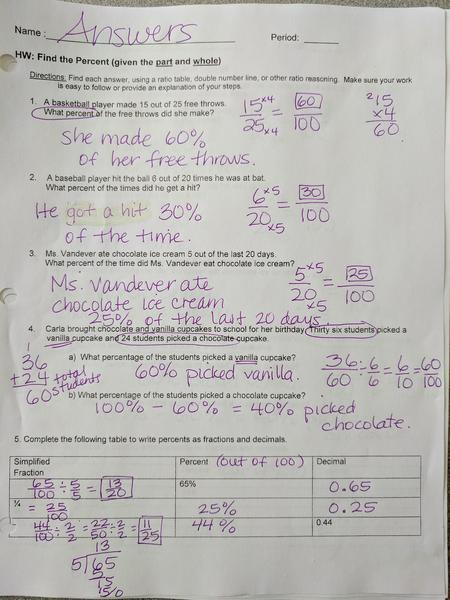 Name: Answers Period:
HW: Find the Percent (given the part and whole)
Directions: Find each answer, using a ratio table, double number line, or other ratio reasoning. Make sure your work
is easy to follow or provide an explanation of your steps.
1. A basketball player made 15 out of 25 free throws.
What percent of the free throws did she make?
15 x4 / 25 x4 = 60 / 100
²15
x4
60
She made 60%
of her free throws.
2. A baseball player hit the ball 6 out of 20 times he was at bat.
What percent of the times did he get a hit?
6 x5 / 20 x5 = 30 / 100
He got a hit 30%
of the time.
3. Ms. Vandever ate chocolate ice cream 5 out of the last 20 days.
What percent of the time did Ms. Vandever eat chocolate ice cream?
5 x5 / 20 x5 = 25 / 100
Ms. Vandever ate
chocolate ice cream
25% of the last 20 days.
4. Carla brought chocolate and vanilla cupcakes to school for her birthday. Thirty six students picked a
vanilla cupcake and 24 students picked a chocolate cupcake.
1
36
+24
60 total students
a) What percentage of the students picked a vanilla cupcake?
60% picked vanilla.
36/60 ÷ 6/6 = 6/10 = 60/100
b) What percentage of the students picked a chocolate cupcake?
100% - 60% = 40% picked
chocolate.
5. Complete the following table to write percents as fractions and decimals.
Simplified Fraction Percent (out of 100) Decimal
65/100 ÷ 5/5 = 13/20 65% 0.65
¼ = 25/100 25% 0.25
44/100 ÷ 2/2 = 22/50 ÷ 2/2 = 11/25 44% 0.44
13
5 65
5
15
15/0